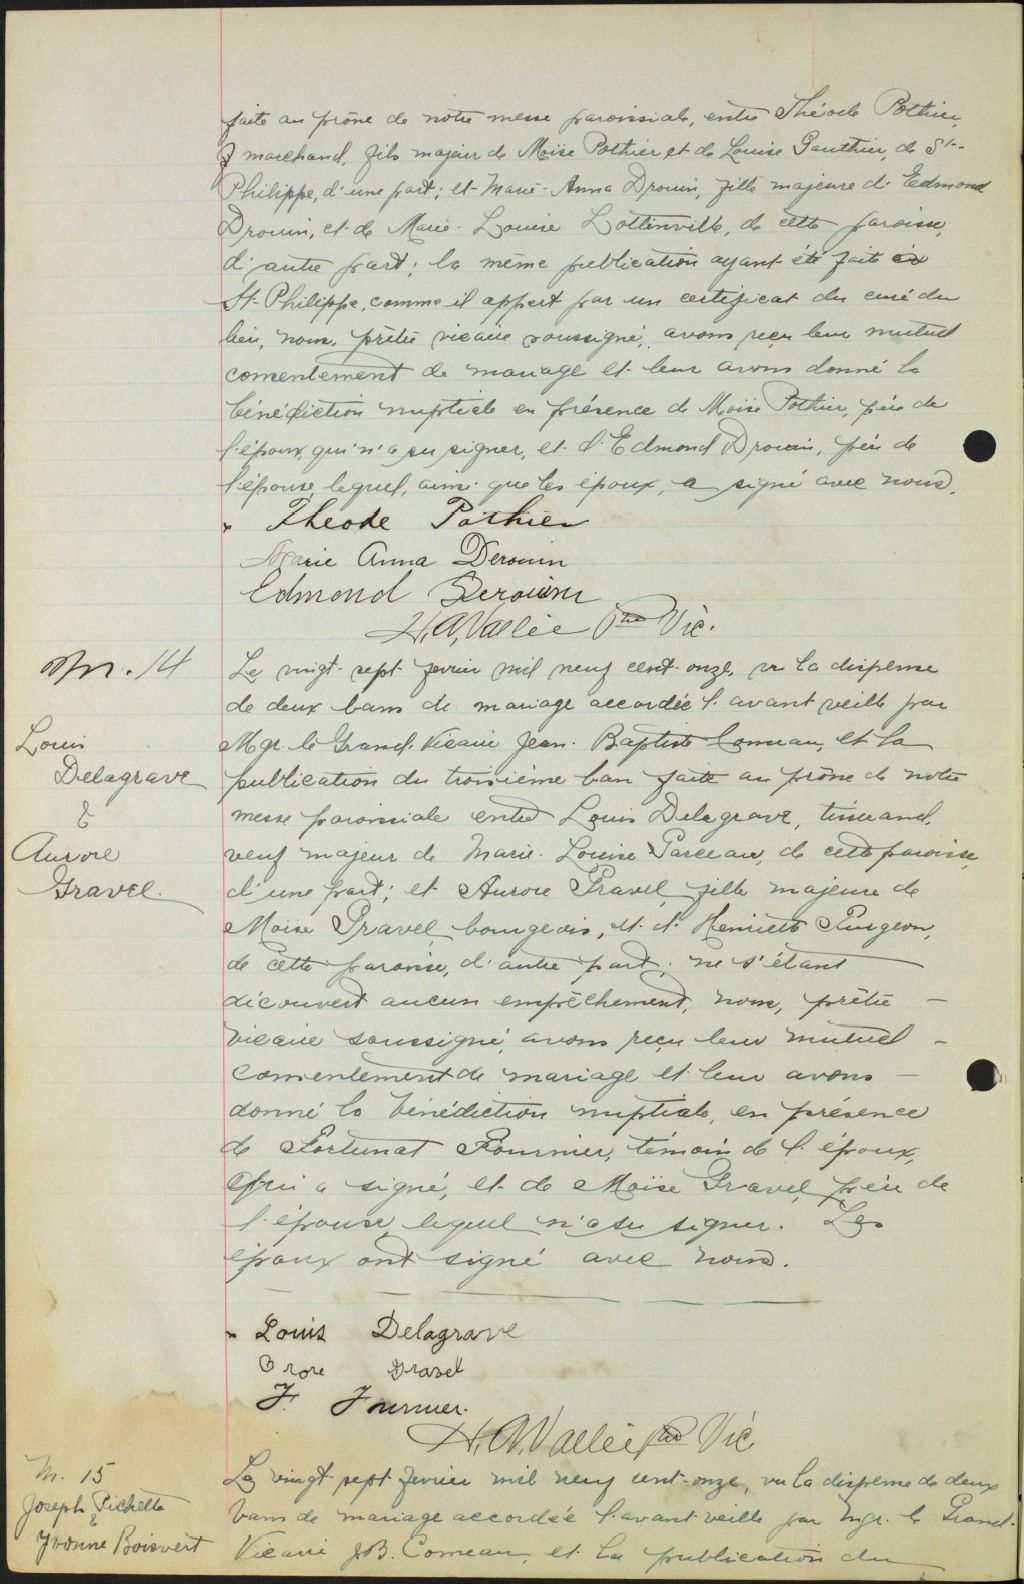 faite au prône de notre messe paroissiale, entre Théode Pothier,
marchand, fils majeur de Moïse Pothier et de Louise Gauthier, de St-
Philippe, d'une part; et Marie-Anna Drouin, fille majeure d'Edmond
Drouin, et de Marie-Louise Lottinville, de cette paroisse,
d'autre part; la même publication ayant été faite à
St-Philippe, comme il appert par un certificat du curé du
lieu, nous, prêtre vicaire soussigné, avons reçu leur mutuel
consentement de mariage et leur avons donné la
bénédiction nuptiale en présence de Moïse Pothier, père de
l'époux, qui n'a su signer, et d'Edmond Drouin, père de
l'épouse, lequel, ainsi que les époux, a signé avec nous.
Theode Pothier
Marie Anna Derouin
Edmond Derouin
H. A. Vallée Ptre Vic.
M. 14
Louis
Delagrave
&
Aurore
Gravel.
Le vingt-sept février mil neuf cent-onze, vu la dispense
de deux bans de mariage accordée l'avant veille par
Mgr. le Grand-Vicaire Jean-Baptiste Comeau, et la
publication du troisième ban faite au prône de notre
messe paroissiale entre Louis Delagrave, tisserand,
veuf majeur de Marie-Louise Parceau, de cette paroisse,
d'une part; et Aurore Gravel, fille majeure de
Moïse Gravel, bourgeois, et d'Henriette Turgeon,
de cette paroisse, d'autre part; ne s'étant
découvert aucun empêchement, nous, prêtre –
vicaire soussigné, avons reçu leur mutuel –
consentement de mariage et leur avons –
donné la bénédiction nuptiale, en présence
de Fortunat Fournier, témoin de l'époux,
qui a signé, et de Moïse Gravel, père de
l'épouse, lequel n'a su signer. Les
époux ont signé avec nous.
Louis Delagrave
Orore Gravel
F. Fournier.
H. A. Vallée ptre Vic
M. 15
Joseph Pichette
&
Yvonne Boisvert
Le vingt-sept février mil neuf cent-onze, vu la dispense de deux
bans de mariage accordée l'avant-veille par Mgr. le Grand-
Vicaire J.B. Comeau, et la publication du